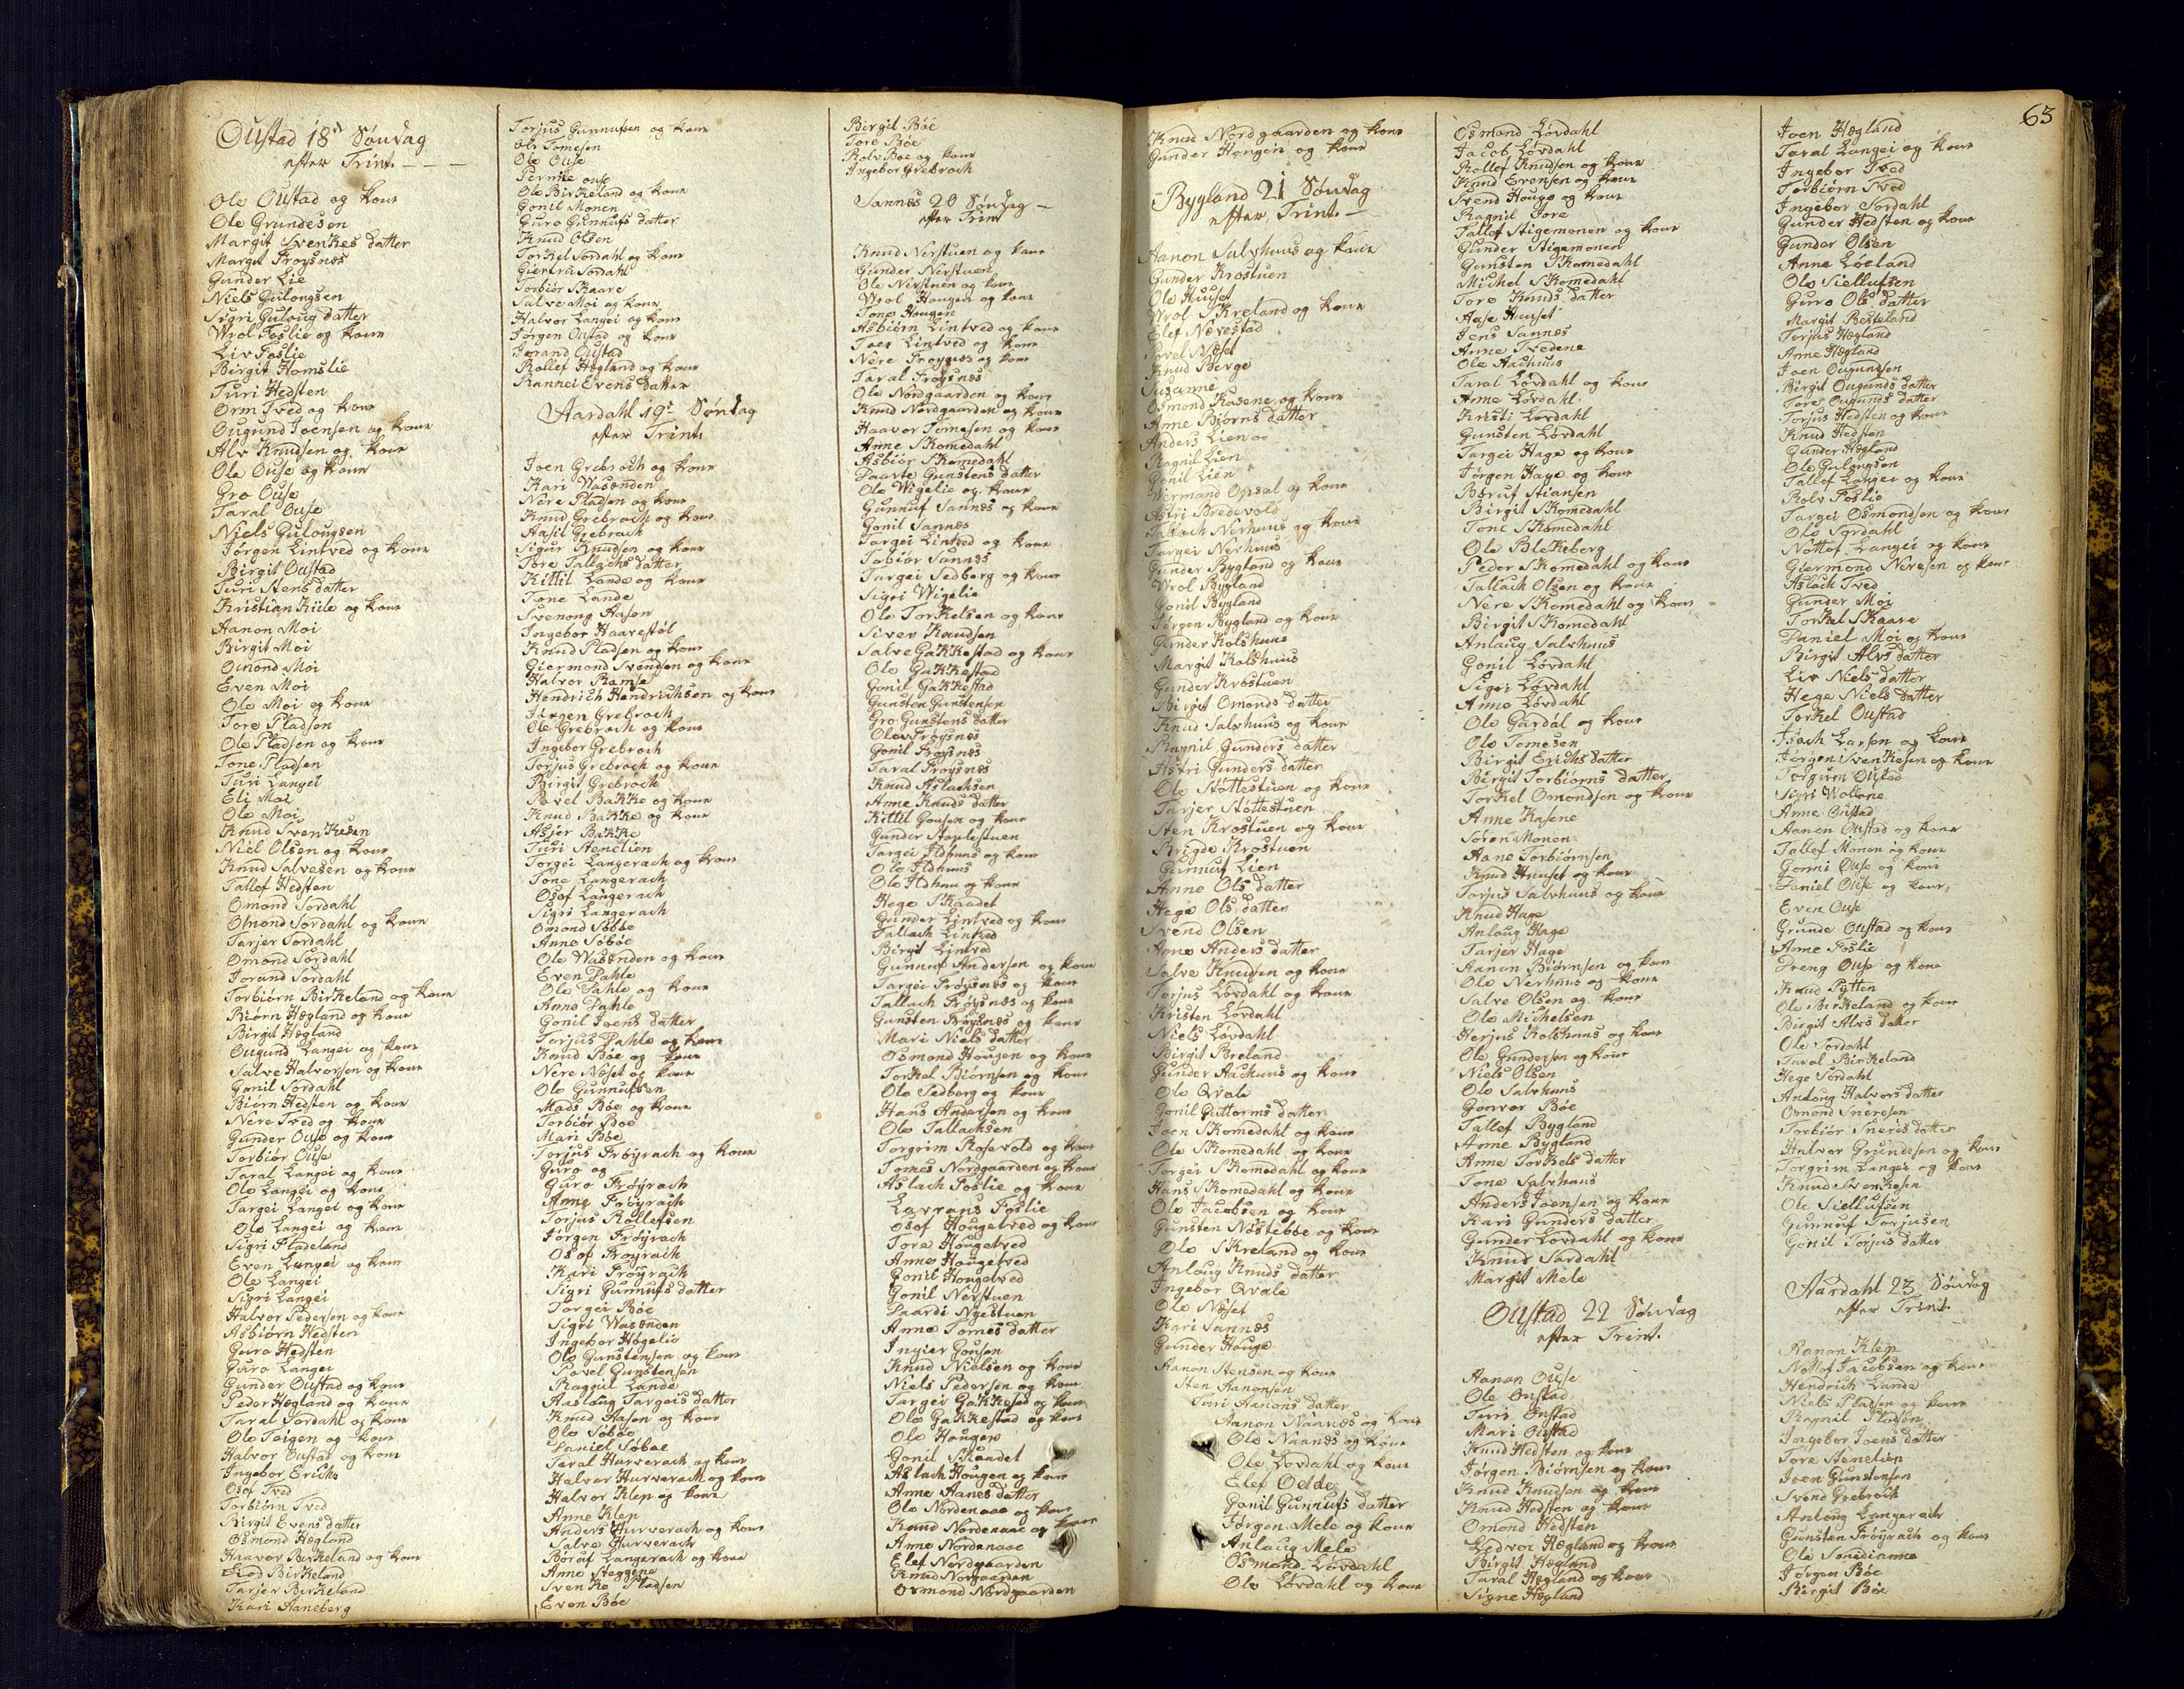 Oustad 18de Søndag
efter Trint.
Ole Oustad og kone
Ole Grundesen
Margit Svenkes datter
Margit Frøysnes
Gunder Lie
Niels Gulougsen
Sigri Guloug datter
Wrol Foslie og kone
Liv Foslie
Birgit Homslie
Turi Hedsten
Orm Tved og kone
Ougund Joensen og kone
Alv Knudsen og kone
Ole Ouse og kone
Gro Ouse
Taral Ouse
Niels Gulougsen
Jørgen Lintved og kone
Birgit Oustad
Turi Stens datter
Kristian Kiile og kone
Aanon Moi
Birgit Moi
Omond Moi
Even Moi
Ole Moi og kone
Tore Pladsen
Ole Pladsen og kone
Tone Pladsen
Turi Langei
Eli Moi
Ole Moi
Knud Svenkesen
Niel Olsen og kone
Knud Salvesen og kone
Tallef Hedsten
Omond Sordahl
Omond Sordahl og kone
Tarjer Sordahl
Omond Sordahl
Jorand Sordahl
Torbiørn Birkeland og kone
Biørn Hegland og kone
Birgit Hegland
Ougund Langei og kone
Salve Halvorsen og kone
Gonil Sordahl
Biørn Hedsten og kone
Nere Tved og kone
Gunder Ouse og kone
Torbiør Ouse
Taral Langei og kone
Ole Langei og kone
Targei Langei og kone
Ole Langei og kone
Sigri Pladeland
Even Langei og kone
Ole Langei
Sigri Langei
Halvor Pedersen og kone
Asbiørn Hedsten
Guro Hedsten
Guro Langei
Gunder Oustad og kone
Peder Hegland og kone
Taral Sordahl og kone
Ole Teigen og kone
Halvor Oustad og kone
Ingebor Erichs
Osof Tved
Torbiørn Tved
Birgit Evens datter
Osmond Hegland
Haavor Birkeland og kone
Birkeland
Tarjer Birkeland
Kari Aaneberg
Torjus Gunnufsen og kone
Ole Tomesen
Ole Ouse
Pernille ouse
Ole Birkeland og kone
Gonil Monen
Guro Gunnufs datter
Knud Olsen
Torkel Sordahl og kone
Giertru Sordahl
Torbiør Skaare
Salve Moi og kone
Halvor Langei og kone
Jørgen Oustad og kone
Jorand Oustad
Rollef Hegland og kone
Rannei Evens datter
Aardahl 19de Søndag
efter Trint.
Joen Grebroch og kone
Kari Wasenden
Nere Pladsen og kone
Knud Grebroch og kone
Hasil Grebroch
Sigur Knudsen og kone
Tore Tallachs datter
Kittil Lande og kone
Tone Lande
Svenong Aasen
Ingebor Haarestøl
Knud Pladsen og kone
Giermond Svendsen og kone
Halvor Ramse
Hendrich Hendrichsen og kone
Jørgen Grebroch
Ole Grebroch og kone
Ingebor Grebroch
Torjus Grebroch og kone
Birgit Grebroch
Povel Bakke og kone
Knud Bakke og kone
Asjer Bakke
Turi Stenelien
Torgei Langerach og kone
Tone Langerach
Osof Langerach
Sigri Langerach
Omond Søbøe
Anne Søbøe
Ole Wasenden og kone
Even Dahle
Ole Dahle og kone
Anne Dahle
Gonil Ivens datter
Torjus Dahle og kone
Knud Bøe og kone
Nere Nøset og kone
Ole Gunnufsen
Mads Bøe og kone
Torbiør Bøe
Mari Bøe
Torjus Frøyrach og kone
Guro og
Guro Frøyrach
Anne Frøyrach
Torjus Rollefsen
Jørgen Frøyrach
Osof Frøyrach
Kari Frøyrach
Sigri Gunnufs datter
Torgei Bøe
Sigri Wasenden
Ingebor Høgelie
Ole Gunstensen og kone
Povel Gunstensen
Ragnil Lande
Aasloug Targeis datter
Knud Aasen og kone
Ole Søbøe
Daniel Søbøe
Taral Hurverach og kone
Halvor Hurverach og kone
Halvor Klep og kone
Anne Klep
Anders Hurverach og kone
Salve Hurverach
Boruf Langerach og kone
Anne Steggene
Svenke Pladsen
Even Bøe
Birgit Bøe
Tore Bøe
Rolv Bøe og kone
Ingebor Grebroch
Sannes 20 Søndag
efter Trint
Knud Nerstuen og kone
Gunder Nerstuen
Ole Nerstuen og kone
Wrol Hougen og kone
Tone Hougen
Asbiørn Lintved og kone
Joen Lintved og kone
Nere Frøysnes og kone
Taral Frøysnes
Ole Nordgaarden og kone
Knud Nordgaarden og kone
Haavor Tomesen og kone
Anne Skomedahl
Asbiør Skomedahl
Paarte Gunstens datter
Ole Wigelie og kone
Gunnuf Sannes og kone
Gonil Sannes
Targei Lintved og kone
Torbiør Sannes
Targei Sedberg og kone
Sigri Wigelie
Ole Torkelsen og kone
Siver Knudsen
Salve Gakkestad og kone
Ole Gakkestad
Gonil Gakkestad
Gunsten Gunstensen
Gro Gunstens datter
Olav Frøysnes
Gonil Frøysnes
Taral Frøysnes
Knud Aslachsen
Anne Knuds datter
Kittil Gousen og kone
Gunder Støylestuen
Targei Ildhuus og kone
Ole Ildhuus
Ole Ildhuu og kone
Hege Skaadet
Gunder Lintved og kone
Tallach Lintved
Birgit Lintved
Gunnuf Andersen og kone
Targei Frøysnes og kone
Tallach Frøysnes og kone
Gunsten Frøysnes og kone
Mari Niels datter
Osmond Hougen og kone
Torkel Biørnsen og kone
Ole Sedberg og kone
Hans Andersen og kone
Ole Tallachsen
Torgrim Rosevold og kone
Tomes Nordgaarden og kone
Aslach Foslie og kone
Lavrans Foslie
Osof Hougetved og kone
Tore Hougetved
Anne Hougetved
Gonil Hougetved
Gonil Nerstuen
Paardi Nyestuen
Anne Tomes datter
Ingier Gousen
Knud Nielsen og kone
Niels Pedersen og kone
Targei Gakkestad og kone
Ole Gakkestad og kone
Ole Hougen
Gonil Skaadet
Aslach Hougen og kone
Anne Aanes datter
Ole Nordenaae og kone
Knud Nordenaae og kone
Anne Nordenaae
Elef Nordgaarden
Knud Norgaarden
Ormond Nordgaarden
63
Knud Nordgaarden og kone
Gunder Hougen og kone
Bygland 21 Søndag
efter Trint.
Aanon Salvhuus og kone
Gunder Krostuen
Ole Huuset
Wrol Skreland og kone
Elef Nevestad
Povel Nøset
Knud Berge
Susanne
Osmond Kasene og kone
Anne Biørns datter
Anders Lien og
Ragnil Lien
Gonil Lien
Wermond Opsal og kone
Astri Bredevold
Tallach Nerhuus og kone
Targei Nerhuus
Gunder Bygland og kone
Wrol Bygland
Gonil Bygland
Jørgen Bygland og kone
Gunder Kolshuus
Margit Kolshuus
Gunder Krostuen
Birgit Omonds datter
Knud Salvhuus og kone
Ragnil Gunders datter
Astri Gunders datter
Ole Støttestuen og kone
Tarjer Støttestuen
Sten Krostuen og kone
Brigde Krostuen
Gunnuf Lien
Anne Ols datter
Hege Ols datter
Svend Olsen
Anne Anders datter
Salve Knudsen og kone
Torjus Løvdahl og kone
Kristen Løvdahl
Niels Løvdahl
Birgit Breland
Gunder Aachuus og kone
Ole Qvale
Gonil Guttorms datter
Joen Skomedahl og kone
Ole Skomedahl og kone
Torgei Skomedahl og kone
Hans Skomedahl og kone
Ole Jacobsen og kone
Gunsten Nøstebbe og kone
Ole Skreland og kone
Anloug Knuds datter
Ingebor Qvale
Ole Nøset
Kari Sannes
Gunder Houge
Aanon Stensen og kone
Sten Aanonsen
Turi Aanons datter
Aanon Naanes og kone
Ole Naanes og kone
Ole Løvdahl og kone
Elef Oelde
Gonil Gunnufs datter
Jørgen Mele og kone
Anlaug Mele
Osmond Løvdahl
Ole Løvdahl og kone
Osmond Løvdahl
Jacob Løvdahl
Rollef Knudsen og kone
Knud Evensen og kone
Svend Houge og kone
Ragnil Jore
Tallef Stigemonen og kone
Gunder Stigemonen
Gunsten Skomedahl
Michel Skomedahl
Tore Knuds datter
Aase Huuset
Jens Sannes
Anne Tvedene
Ole Aachuus
Taral Løvdahl og kone
Anne Løvdahl
Kristi Løvdahl
Gunsten Løvdahl
Targei Hage og kone
Jørgen Hage og kone
Boruf Stiansen
Birgit Skomedahl
Tone Skomedahl
Ole Blekeberg
Peder Skomedahl og kone
Tallach Olsen og kone
Nere Skomedahl og kone
Birgit Skomedahl
Anlaug Salvhuus
Gonil Løvdahl
Sigri Løvdahl
Anne Løvdahl
Ole Gardal og kone
Ole Tomesen
Birgit Erichs datter
Birgit Torbiørns datter
Torkel Omondsen og kone
Anne Kasene
Søren Monen
Aane Torbiørnsen
Knud Huuset og kone
Torjus Salvhuus og kone
Knud Hage
Anloug Hage
Tarjer Hage
Aanon Biørnsen og kone
Ole Nerhuus og kone
Salve Olsen og kone
Ole Michelsen
Herjus Kolshuus og kone
Ole Gundersen og kone
Niels Olsen
Ole Salvhuus
Gonvor Bøe
Tallef Bygland
Anne Bygland
Anne Torkels datter
Tone Salvhuus
Anders Joensen og kone
Kari Gunders datter
Gunder Løvdahl og kone
Knud Sordahl
Margit Mele
Oustad 22 Søndag
efter Trint.
Aanon Ouse
Ole Oustad
Turi Oustad
Mari Oustad
Knud Hedsten og kone
Jørgen Biørnsen og kone
Knud Knudsen og kone
Knud Hedsten og kone
Omond Hedsten
Ledvor Hegland og kone
Birgit Hegland
Taral Hegland og kone
Signe Hegland
Joen Hegland
Taral Langei og kone
Ingebor Tved
Torbiørn Tved
Ingebor Sordahl
Gunder Hedsten og kone
Gunder Olsen
Anne Løeland
Ole Siellufsen
Guro Ols datter
Margit Besteland
Torjus Hegland
Anne Hegland
Joen Ougundsen
Birgit Ougunds datter
Tore Ougunds datter
Torjus Hedsten og kone
Knud Hedsten
Gunder Hegland
Ole Gulougsen
Tallef Langei og kone
Rolv Foslie
Targei Osmondsen og kone
Ole Sordahl
Nottof Langei og kone
Giermond Neresen og kone
Aslach Tved
Gunder Moi
Torkel Skaare
Daniel Moi og kone
Birgit Alvs datter
Liv Niels datter
Hege Niels datter
Torkel Oustad
Isach Larsen og kone
Jørgen Svenkesen og kone
Torgrim Oustad
Sigri Wollene
Anne Oustad
Aanon Oustad og kone
Tallef Monen og kone
Gonni Ouse og kone
Daniel Ouse og kone
Even Ouse
Grunde Oustad og kone
Anne Foslie
Dreng Ouse og kone
Knud Pytten
Ole Birkeland og kone
Birgit Alvs datter
Ole Sordahl
Taral Birkeland
Hege Sordahl
Anloug Halvors datter
Omond Sneresen
Torbiør Sneres datter
Halvor Grundesen og kone
Torgrim Langei og kone
Knud Svenkesen
Ole Siellufsen
Gunnuf Torjusen
Gonil Torjus datter
Aardahl 23 Søndag
efter Trint.
Aanon Klep
Nottof Jacobsen og kone
Hendrich Lande
Niels Pladsen og kone
Ragnil Pladsen
Ingebor Joens datter
Tore Stenelien
Joen Gunstensen
Svend Grebroch
Anloug Langerach
Gunsten Frøyrach og kone
Ole
Jørgen Bøe
Birgit Bøe